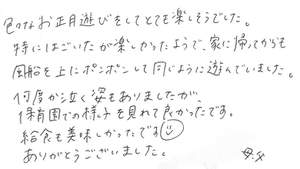 色々なお正月遊びをしてとても楽しそうでした。
特にはごいたが楽しかったようで、家に帰ってからも
風船を上にポンポンして同じように遊んでいました。
何度か泣く姿もありましたが、
保育園での様子を見れて良かったです。
給食も美味しかったです
ありがとうございました。
母・父